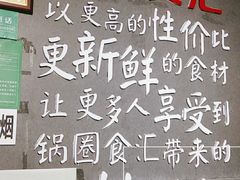 汇
话
以更高的性价比
更新鲜的食材
让更多人享受到
烟
锅圈食汇带来的